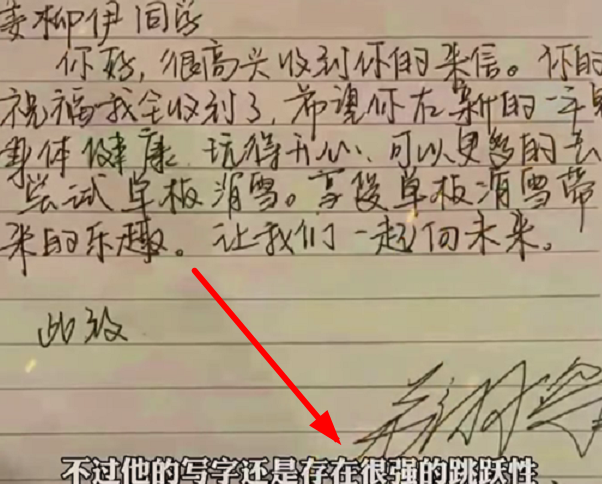 姜柳伊同学
你好,很高兴收到你的来信。你的
祝福我全收到了,希望你在新的一年里
身体健康、玩得开心、可以更多的去
尝试单板滑雪。享受单板滑雪带
来的乐趣。让我们一起向未来。
此致
苏翊鸣
不过他的写字还是存在很强的跳跃性